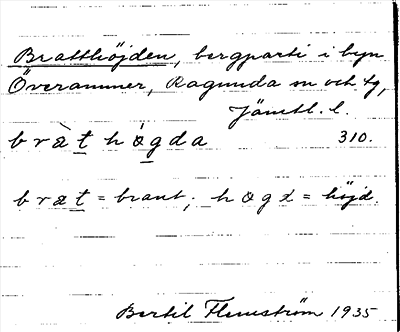 Bratthöjden, bergparti i byn
Överammer, Ragunda sn och tg,
Jämtl. l.
bræ̀t hø̀gda 310.
bræt = brant; høgd = höjd.
Bertil Flemström 1935